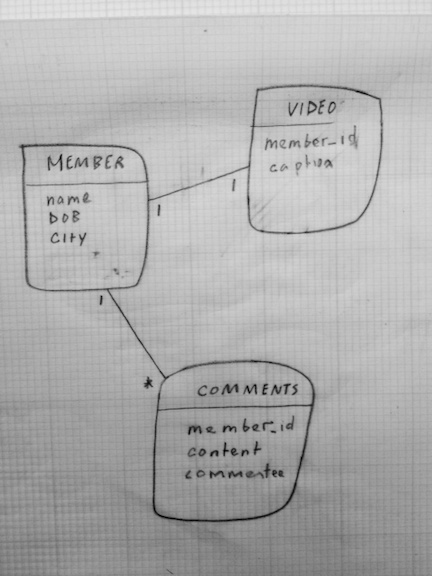 VIDEO
member_id
caption
MEMBER
name
DOB
CITY
1
1
1
*
COMMENTS
member_id
content
commentee